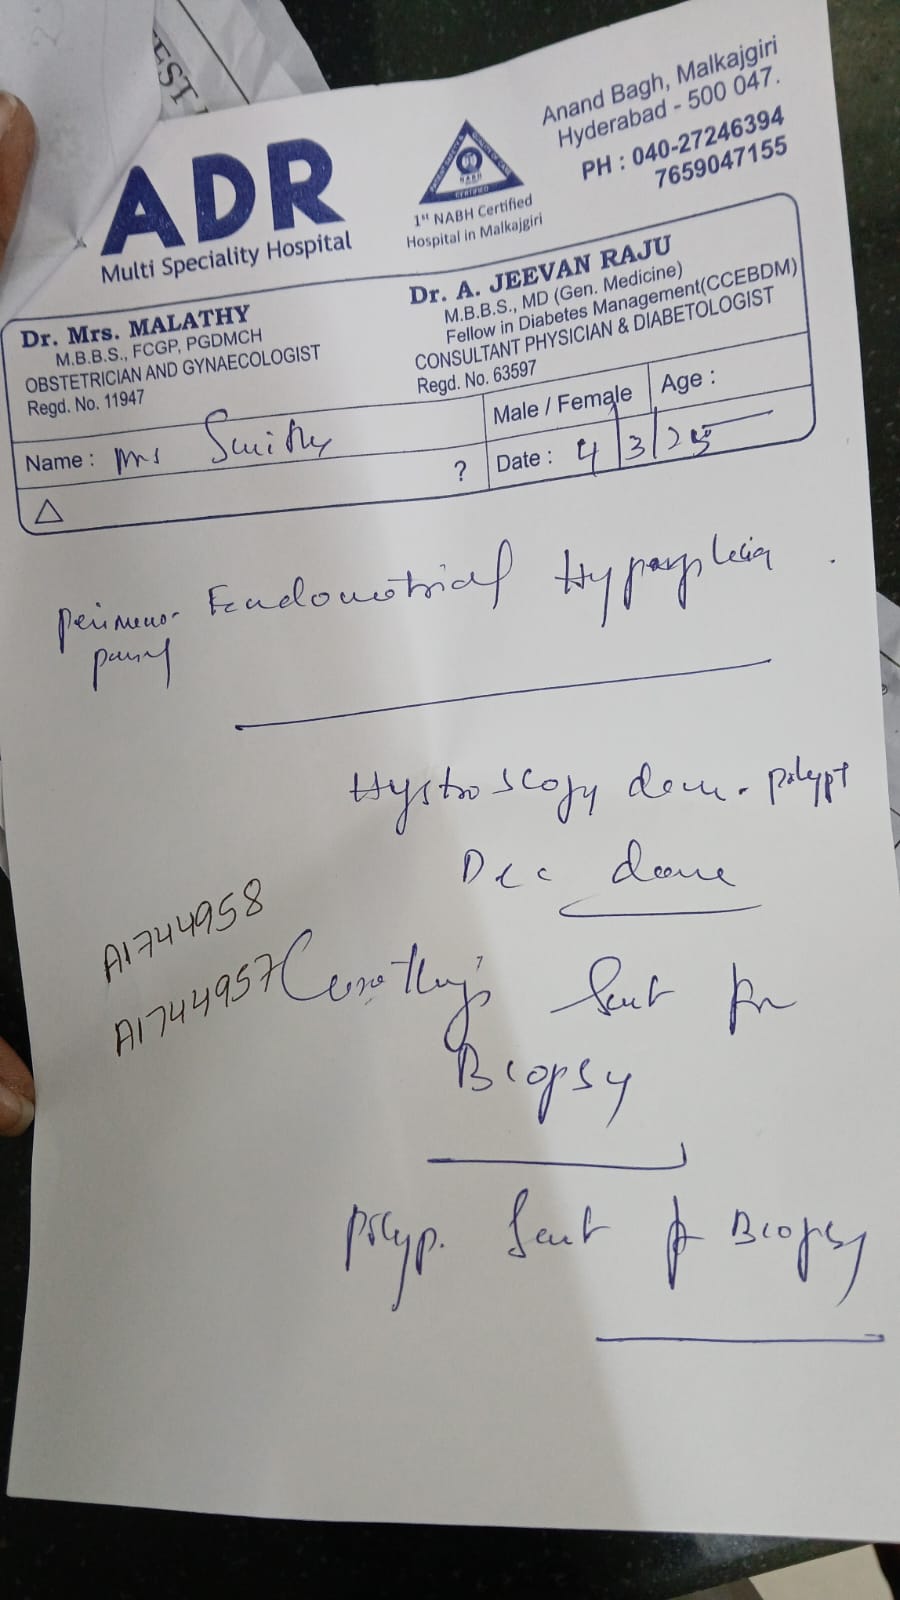 EST
ADR
Multi Speciality Hospital
1st NABH Certified
Hospital in Malkajgiri
Anand Bagh, Malkajgiri
Hyderabad - 500 047.
PH : 040-27246394
7659047155
Dr. Mrs. MALATHY
M.B.B.S., FCGP, PGDMCH
OBSTETRICIAN AND GYNAECOLOGIST
Regd. No. 11947
Dr. A. JEEVAN RAJU
M.B.B.S., MD (Gen. Medicine)
Fellow in Diabetes Management(CCEBDM)
CONSULTANT PHYSICIAN & DIABETOLOGIST
Regd. No. 63597
Name : Mrs
Male / Female
Age :
? Date : 4/3/25
Perimeno-
pausal
Endometrial Hyperplasia
Hystroscopy done. polypt
D & C done
A1744958
A1744957
Sent for
Biopsy
Polyp. Sent for Biopsy